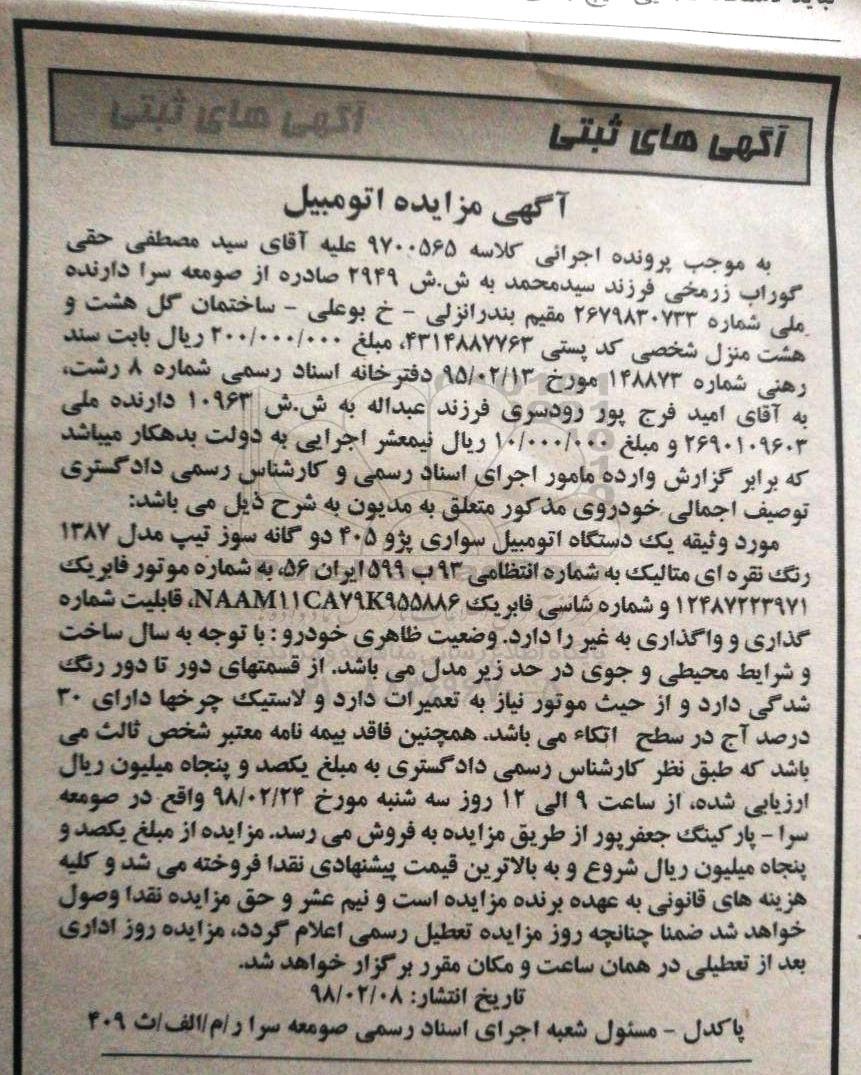 آگهی های ثبتی
آگهی مزایده اتومبیل
به موجب پرونده اجرائی کلاسه ۹۷۰۰۵۶۵ علیه آقای سید مصطفی حقی
گوراب زرمخی فرزند سیدمحمد به ش.ش ۲۹۴۹ صادره از صومعه سرا دارنده
ملی شماره ۲۶۷۹۸۳۰۷۳۳ مقیم بندرانزلی - خ بوعلی - ساختمان گل هشت و
هشت منزل شخصی کد پستی ۴۳۱۴۸۸۷۷۶۳، مبلغ ۲۰۰/۰۰۰/۰۰۰ ریال بابت سند
رهنی شماره ۱۴۸۸۷۳ مورخ ۹۵/۰۲/۱۳ دفترخانه اسناد رسمی شماره ۸ رشت،
به آقای امید فرج پور رودسری فرزند عبداله به ش.ش ۱۰۹۶۳ دارنده ملی
۲۶۹۰۱۰۹۶۰۳ و مبلغ ۱۰/۰۰۰/۰۰۰ ریال نیمعشر اجرایی به دولت بدهکار میباشد
که برابر گزارش وارده مامور اجرای اسناد رسمی و کارشناس رسمی دادگستری
توصیف اجمالی خودروی مذکور متعلق به مدیون به شرح ذیل می باشد:
مورد وثیقه یک دستگاه اتومبیل سواری پژو ۴۰۵ دو گانه سوز تیپ مدل ۱۳۸۷
رنگ نقره ای متالیک به شماره انتظامی ۹۳ ب ۵۹۹ ایران ۵۶، به شماره موتور فابریک
۱۲۴۸۷۲۲۳۹۷۱ و شماره شاسی فابریک NAAM۱۱CA۷۹K۹۵۵۸۸۶، قابلیت شماره
گذاری و واگذاری به غیر را دارد. وضعیت ظاهری خودرو : با توجه به سال ساخت
و شرایط محیطی و جوی در حد زیر مدل می باشد. از قسمتهای دور تا دور رنگ
شدگی دارد و از حیث موتور نیاز به تعمیرات دارد و لاستیک چرخها دارای ۳۰
درصد آج در سطح اتکاء می باشد. همچنین فاقد بیمه نامه معتبر شخص ثالث می
باشد که طبق نظر کارشناس رسمی دادگستری به مبلغ یکصد و پنجاه میلیون ریال
ارزیابی شده، از ساعت ۹ الی ۱۲ روز سه شنبه مورخ ۹۸/۰۲/۲۴ واقع در صومعه
سرا - پارکینگ جعفرپور از طریق مزایده به فروش می رسد. مزایده از مبلغ یکصد و
پنجاه میلیون ریال شروع و به بالاترین قیمت پیشنهادی نقدا فروخته می شد و کلیه
هزینه های قانونی به عهده برنده مزایده است و نیم عشر و حق مزایده نقدا وصول
خواهد شد ضمنا چنانچه روز مزایده تعطیل رسمی اعلام گردد، مزایده روز اداری
بعد از تعطیلی در همان ساعت و مکان مقرر برگزار خواهد شد.
تاریخ انتشار: ۹۸/۰۲/۰۸
پاکدل - مسئول شعبه اجرای اسناد رسمی صومعه سرا ر/م/الف/ث ۴۰۹